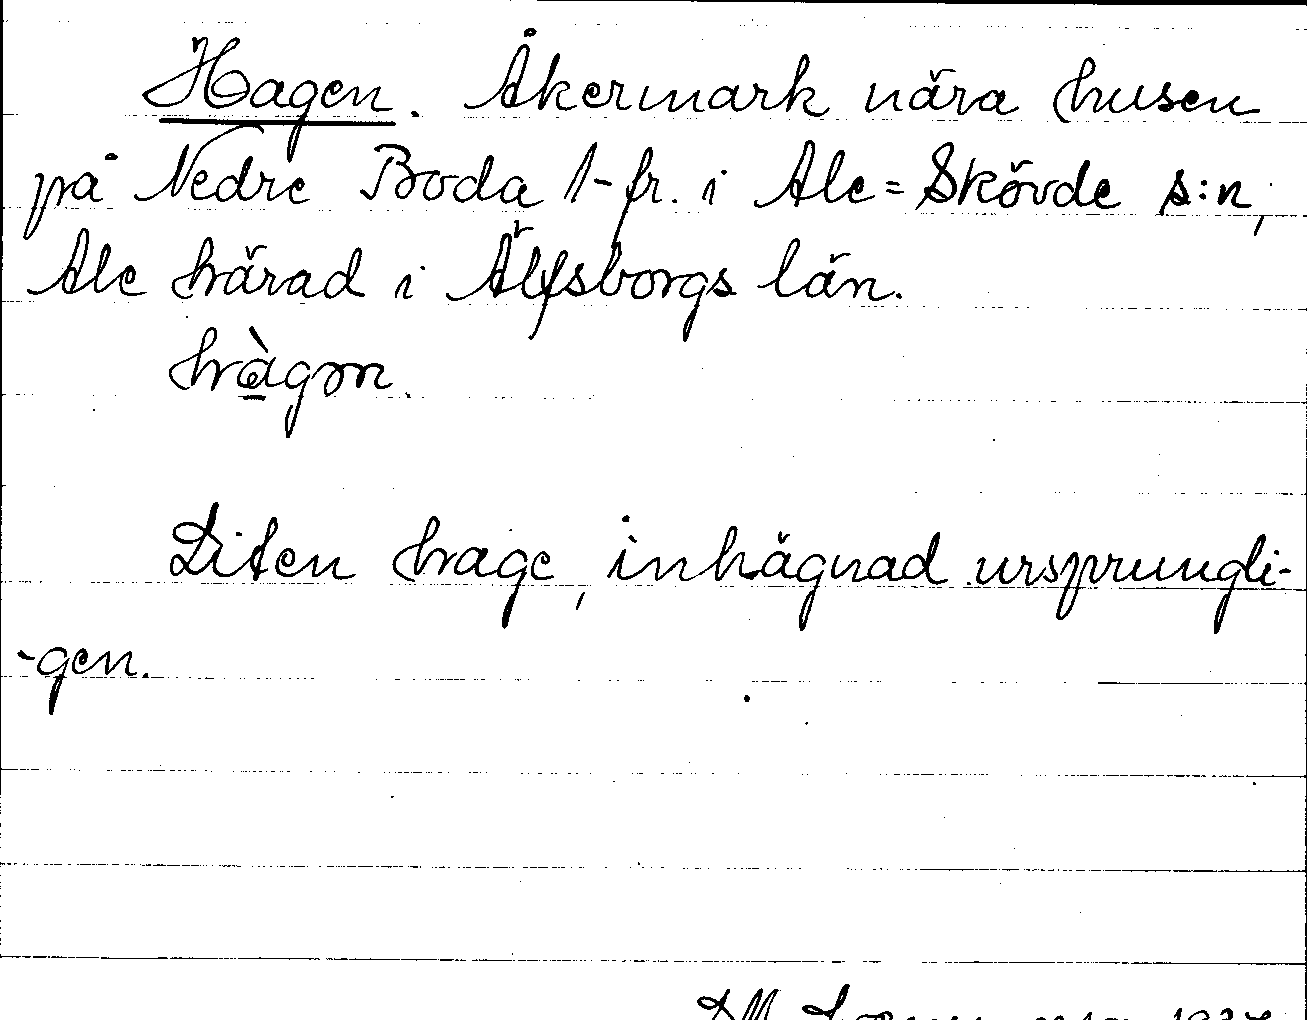 Hagen. Åkermark nära husen
på Nedre Boda 1-fr. i Ale=Skövde s:n,
Ale härad i Älfsborgs län.
hàgɷn.
Liten hage, inhägnad ursprungli-
-gen.